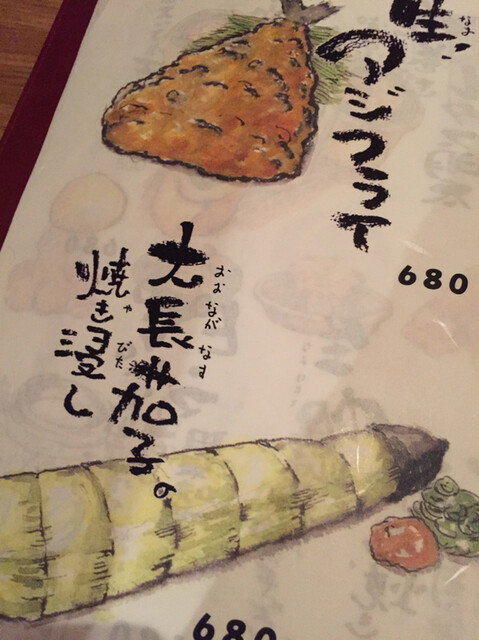 生アジフライ
なま
680
大長茄子の
おおなが なす
焼き浸し
や びた
680